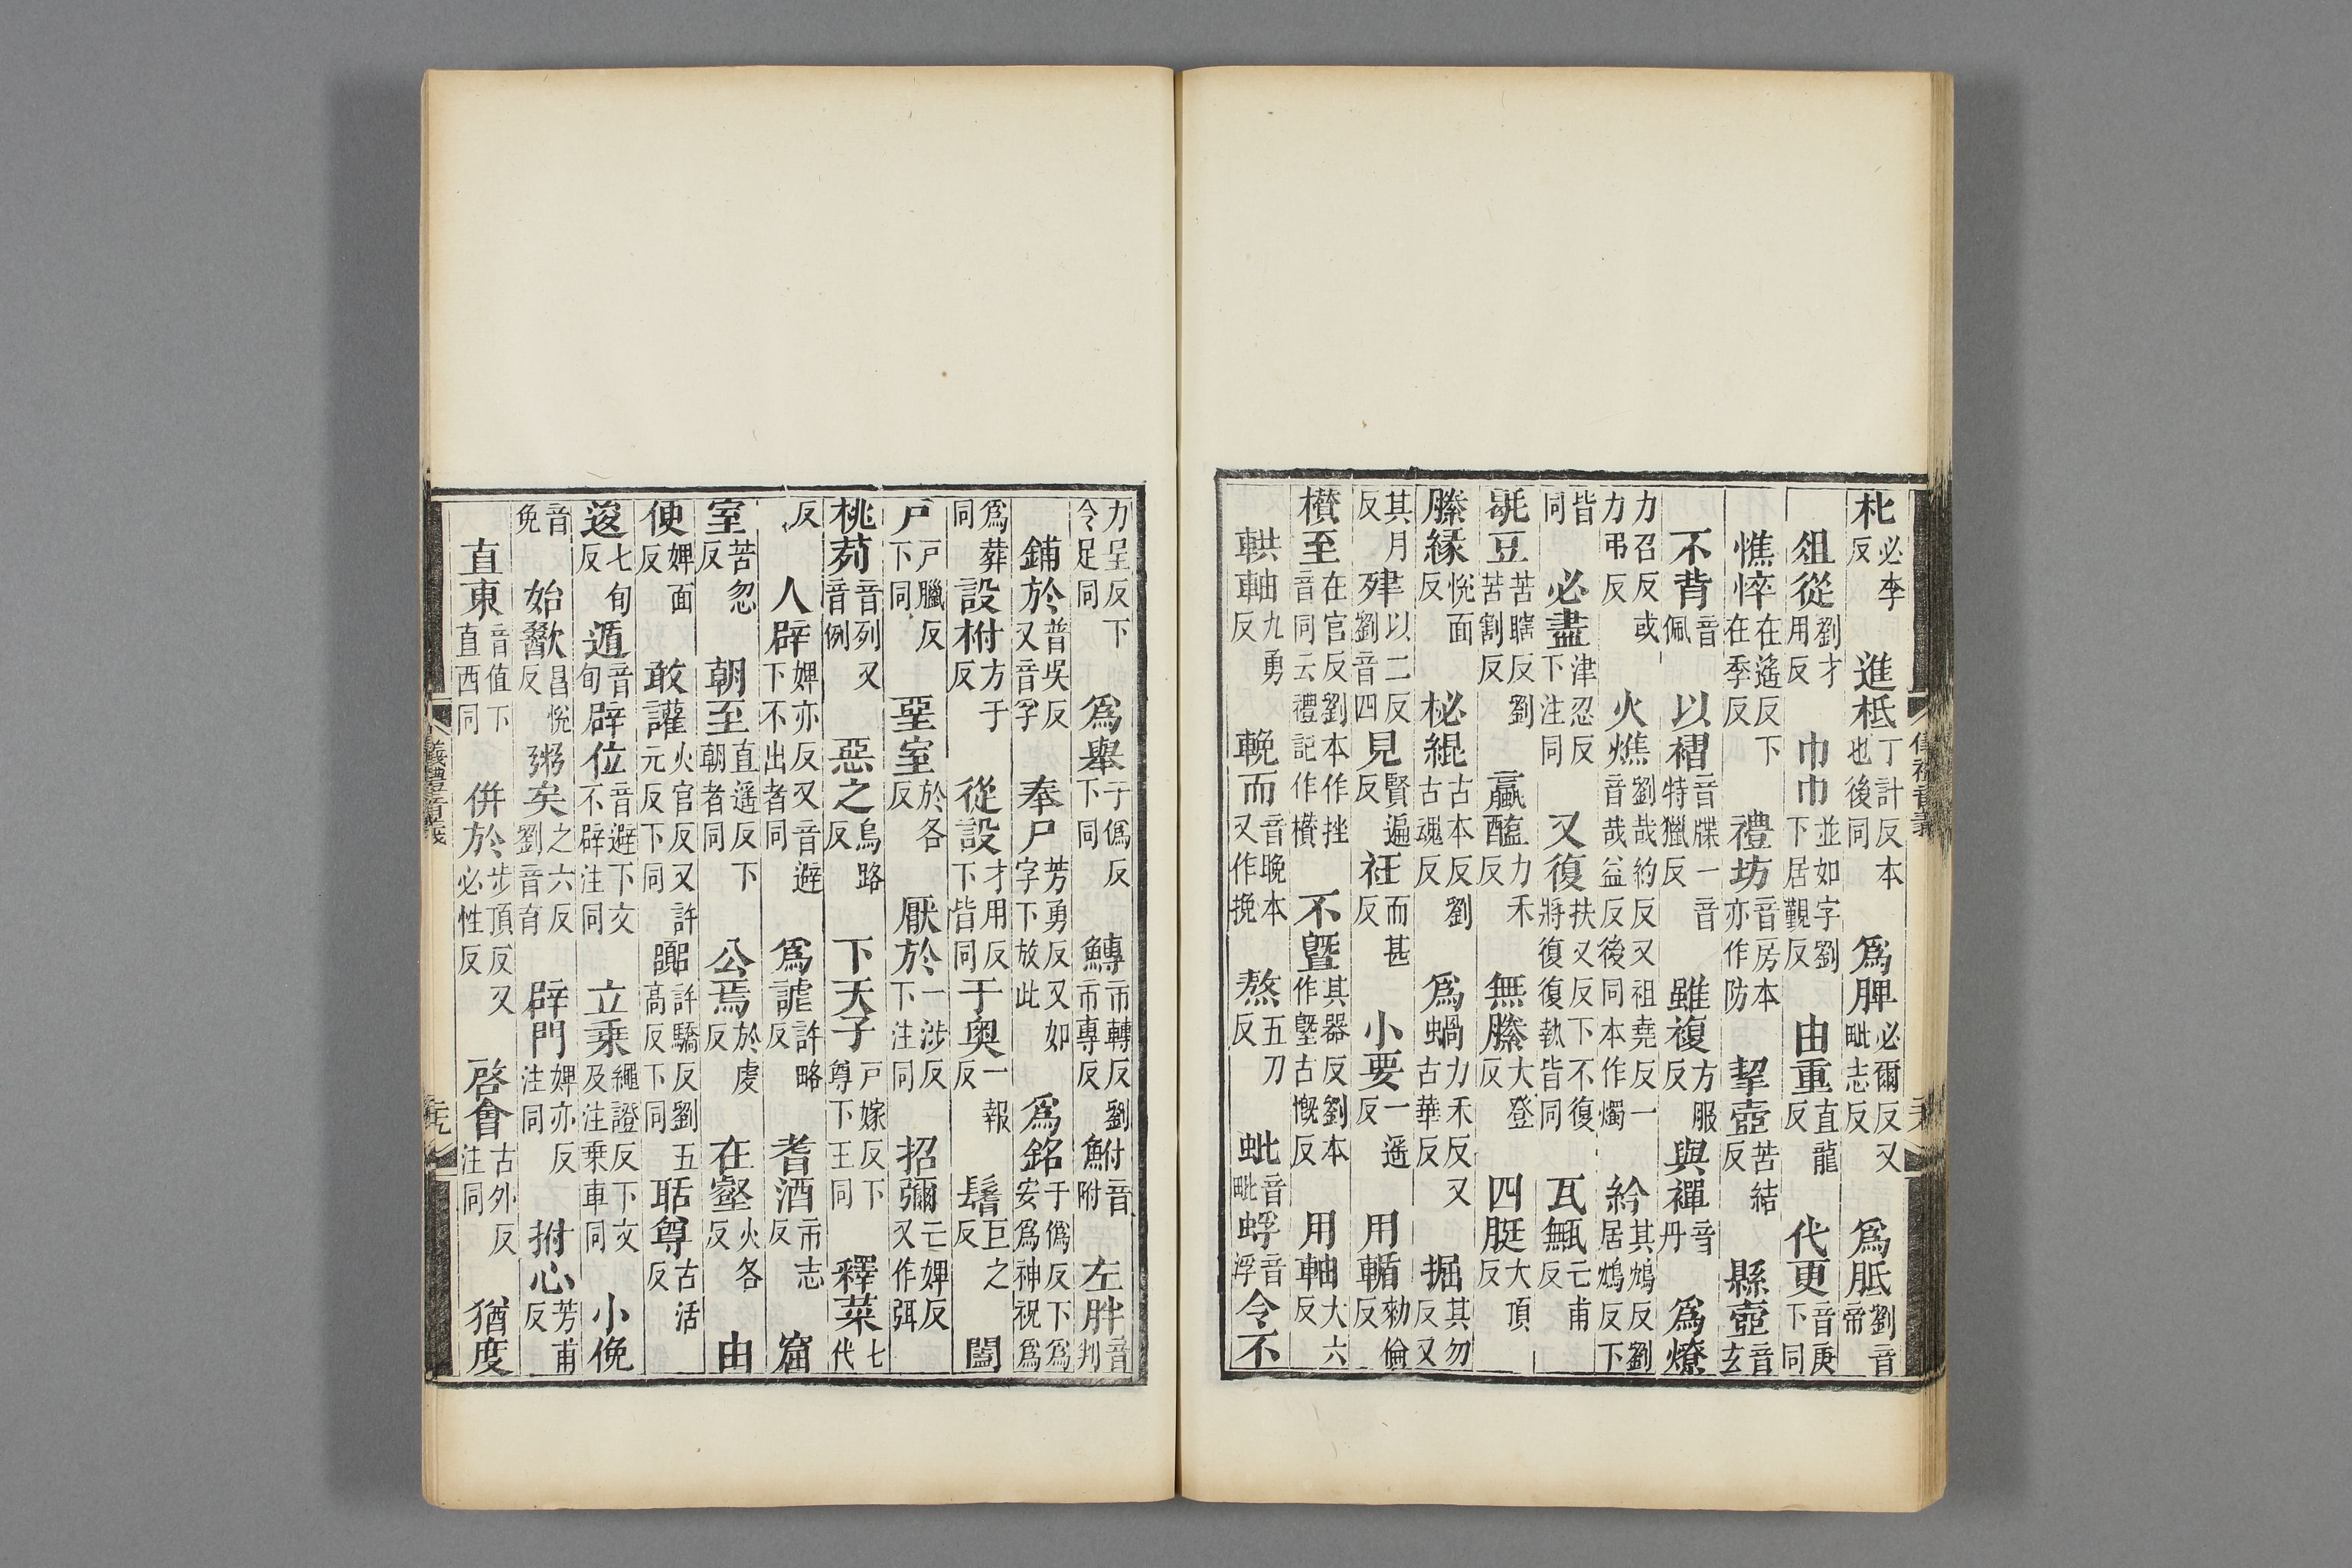 朼必李反　進柢丁計反本也後同　爲脾必爾反又毗志反　爲胝劉音帝
俎從劉才用反　巾巾並如字劉下居觀反　由重直龍反　代更音庚下同
憔悴在遙反下在季反　禮坊音房本亦作防　挈壺苦結反　縣壺音玄
不背音佩　以褶音牒一音特獵反　雖複方服反　與襌音丹　爲燎
力召反或力弔反　火燋劉哉約反又祖堯反一音哉益反後同本作燭　紟其鴆反劉居鴆反下
皆同　必盡津忍反下注同　又復扶又反下不復將復復執皆同　瓦甒亡甫反
毼豆苦瞎反劉苦割反　蠃醢力禾反　無縢大登反　四脡大頂反
縢緣悅面反　柲緄古本反劉古魂反　爲蝸力禾反又古華反　掘其勿反又
其月反　殔以二反劉音四　見賢遍反　衽而甚反　小要一遥反　用輴勑倫反
欑至在官反劉本作挫音同云禮記作欑　不曁其器反劉本作墍古慨反　用軸大六反
輁軸九勇反　輓而音晚本又作挽　熬五刀反　蚍音毗蜉音浮令不
力呈反下令足同　爲舉于僞反下同　鱄市轉反劉市專反鮒音附　左胖音判
鋪於普吳反又音孚　奉尸芳勇反又如字下放此　爲銘于僞反下爲安爲神祝爲
爲葬同　設柎方于反　從設才用反下皆同　于奧一報反　鬠巨之反　闔
戶戶臘反下同　堊室於各反　厭於一涉反下注同　招彌亡婢反又作弭
桃茢音列又音例　惡之烏路反　下天子戶嫁反下尊下王同　釋菜七代
反　人辟婢亦反又音避下不出者同　爲謔許略反　耆酒市志反　窟
室苦忽反　朝至直遥反下朝者同　公焉於虔反　在壑火各反　由
便婢面反　敢讙火官反又許元反下同　嚻許驕反劉五高反下同　聒尊古活反
逡七旬反遁音旬辟位音避下文不辟注同　立乘繩證反下文及注乗車同　小俛
音免　始歠昌悅反　粥矣之六反劉音育　辟門婢亦反注同　拊心芳甫反
直東音值下直西同　併於步頂反又必性反　啓會古外反注同　猶度
儀禮音義